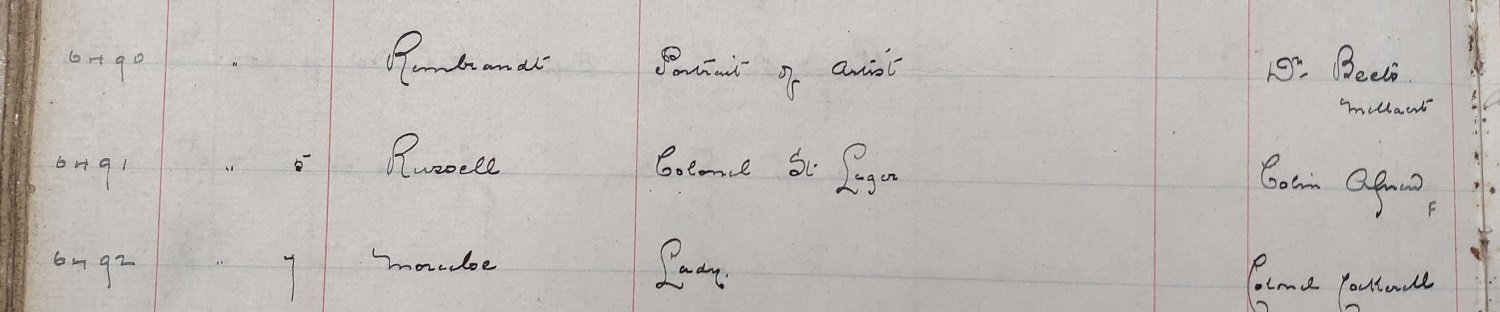 6490 " Rembrandt Portrait of Artist Dr. Beets
6491 " 5 Russell Colonel St. Leger Colin Agnew
F
6492 " 7 Lady. Colonel Cockerell